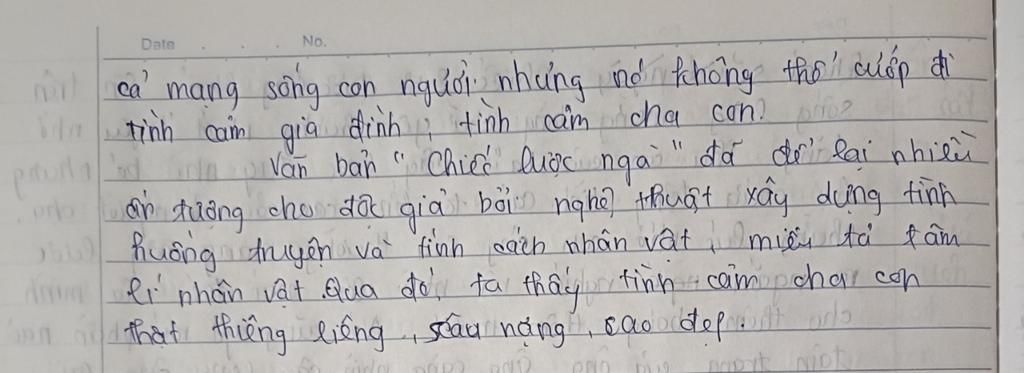 Date . . . No.
cả mạng sống con người nhưng nó không thể cướp đi
tình cảm gia đình, tình cảm cha con.
Văn bản "Chiếc lược ngà" đã để lại nhiều
ấn tượng cho độc giả bởi nghệ thuật xây dựng tình
huống truyện và tính cách nhân vật, miêu tả tâm
lí nhân vật. Qua đó, ta thấy tình cảm cha con
thật thiêng liêng, sâu nặng, cao đẹp.